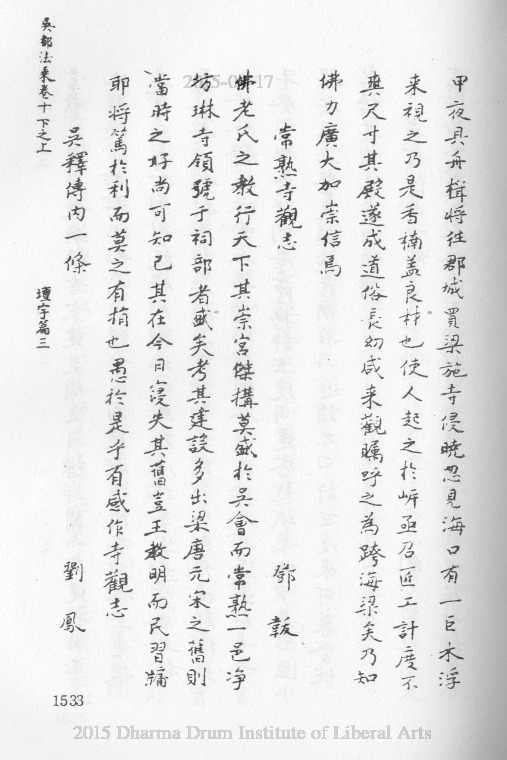 甲夜具舟楫將往郡城買梁施寺侵曉忽見海口有一巨木浮
來視之乃是香楠蓋良材也使人起之於岸亟召匠工計度不
爽尺寸其殿遂成道俗長幼咸來觀矚呼之為跨海梁矣乃知
佛力廣大加崇信焉
常熟寺觀志 鄧韍
佛老氏之教行天下其崇宮傑搆莫盛於吳會而常熟一邑净
坊琳寺領號于祠部者盛矣考其建設多出梁唐元宋之舊則
當時之好尚可知已其在今日寖失其舊豈王教明而民習牗
耶將篤於利而莫之有捐也愚於是乎有感作寺觀志
吳釋傳內一條 劉鳳
吳都法乘卷十下之上 壇宇篇三
1533
2015 Dharma Drum Institute of Liberal Arts